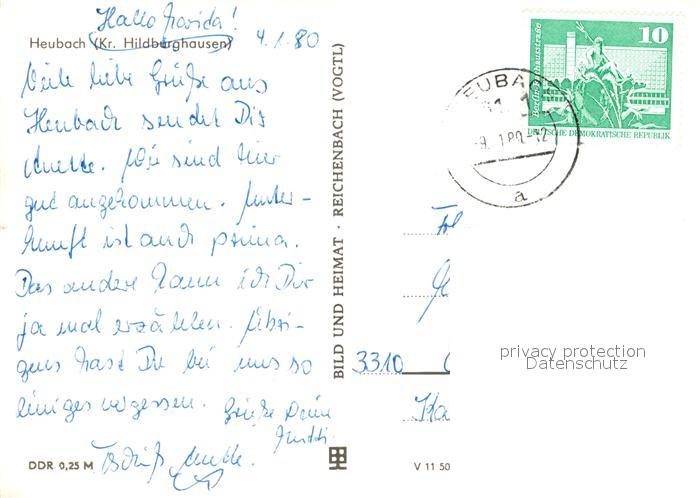 Hallo
Heubach (Kr. Hildburghausen) 4.1.80
Viele liebe Grüße aus
Heubach sendet Dir
Anette. Wir sind hier
gut angekommen. Unter-
kunft ist auch prima.
Das andere kann ich Dir
ja mal erzählen. Übri-
gens hast Du bei uns so
einiges vergessen. Grüße Deine
Tschüß Anette.
DDR 0,25 M
BILD UND HEIMAT · REICHENBACH (VOGTL)
V 11 50
10
Berlin, Rathausstraße
DEUTSCHE DEMOKRATISCHE REPUBLIK
a
3310
privacy protection
Datenschutz